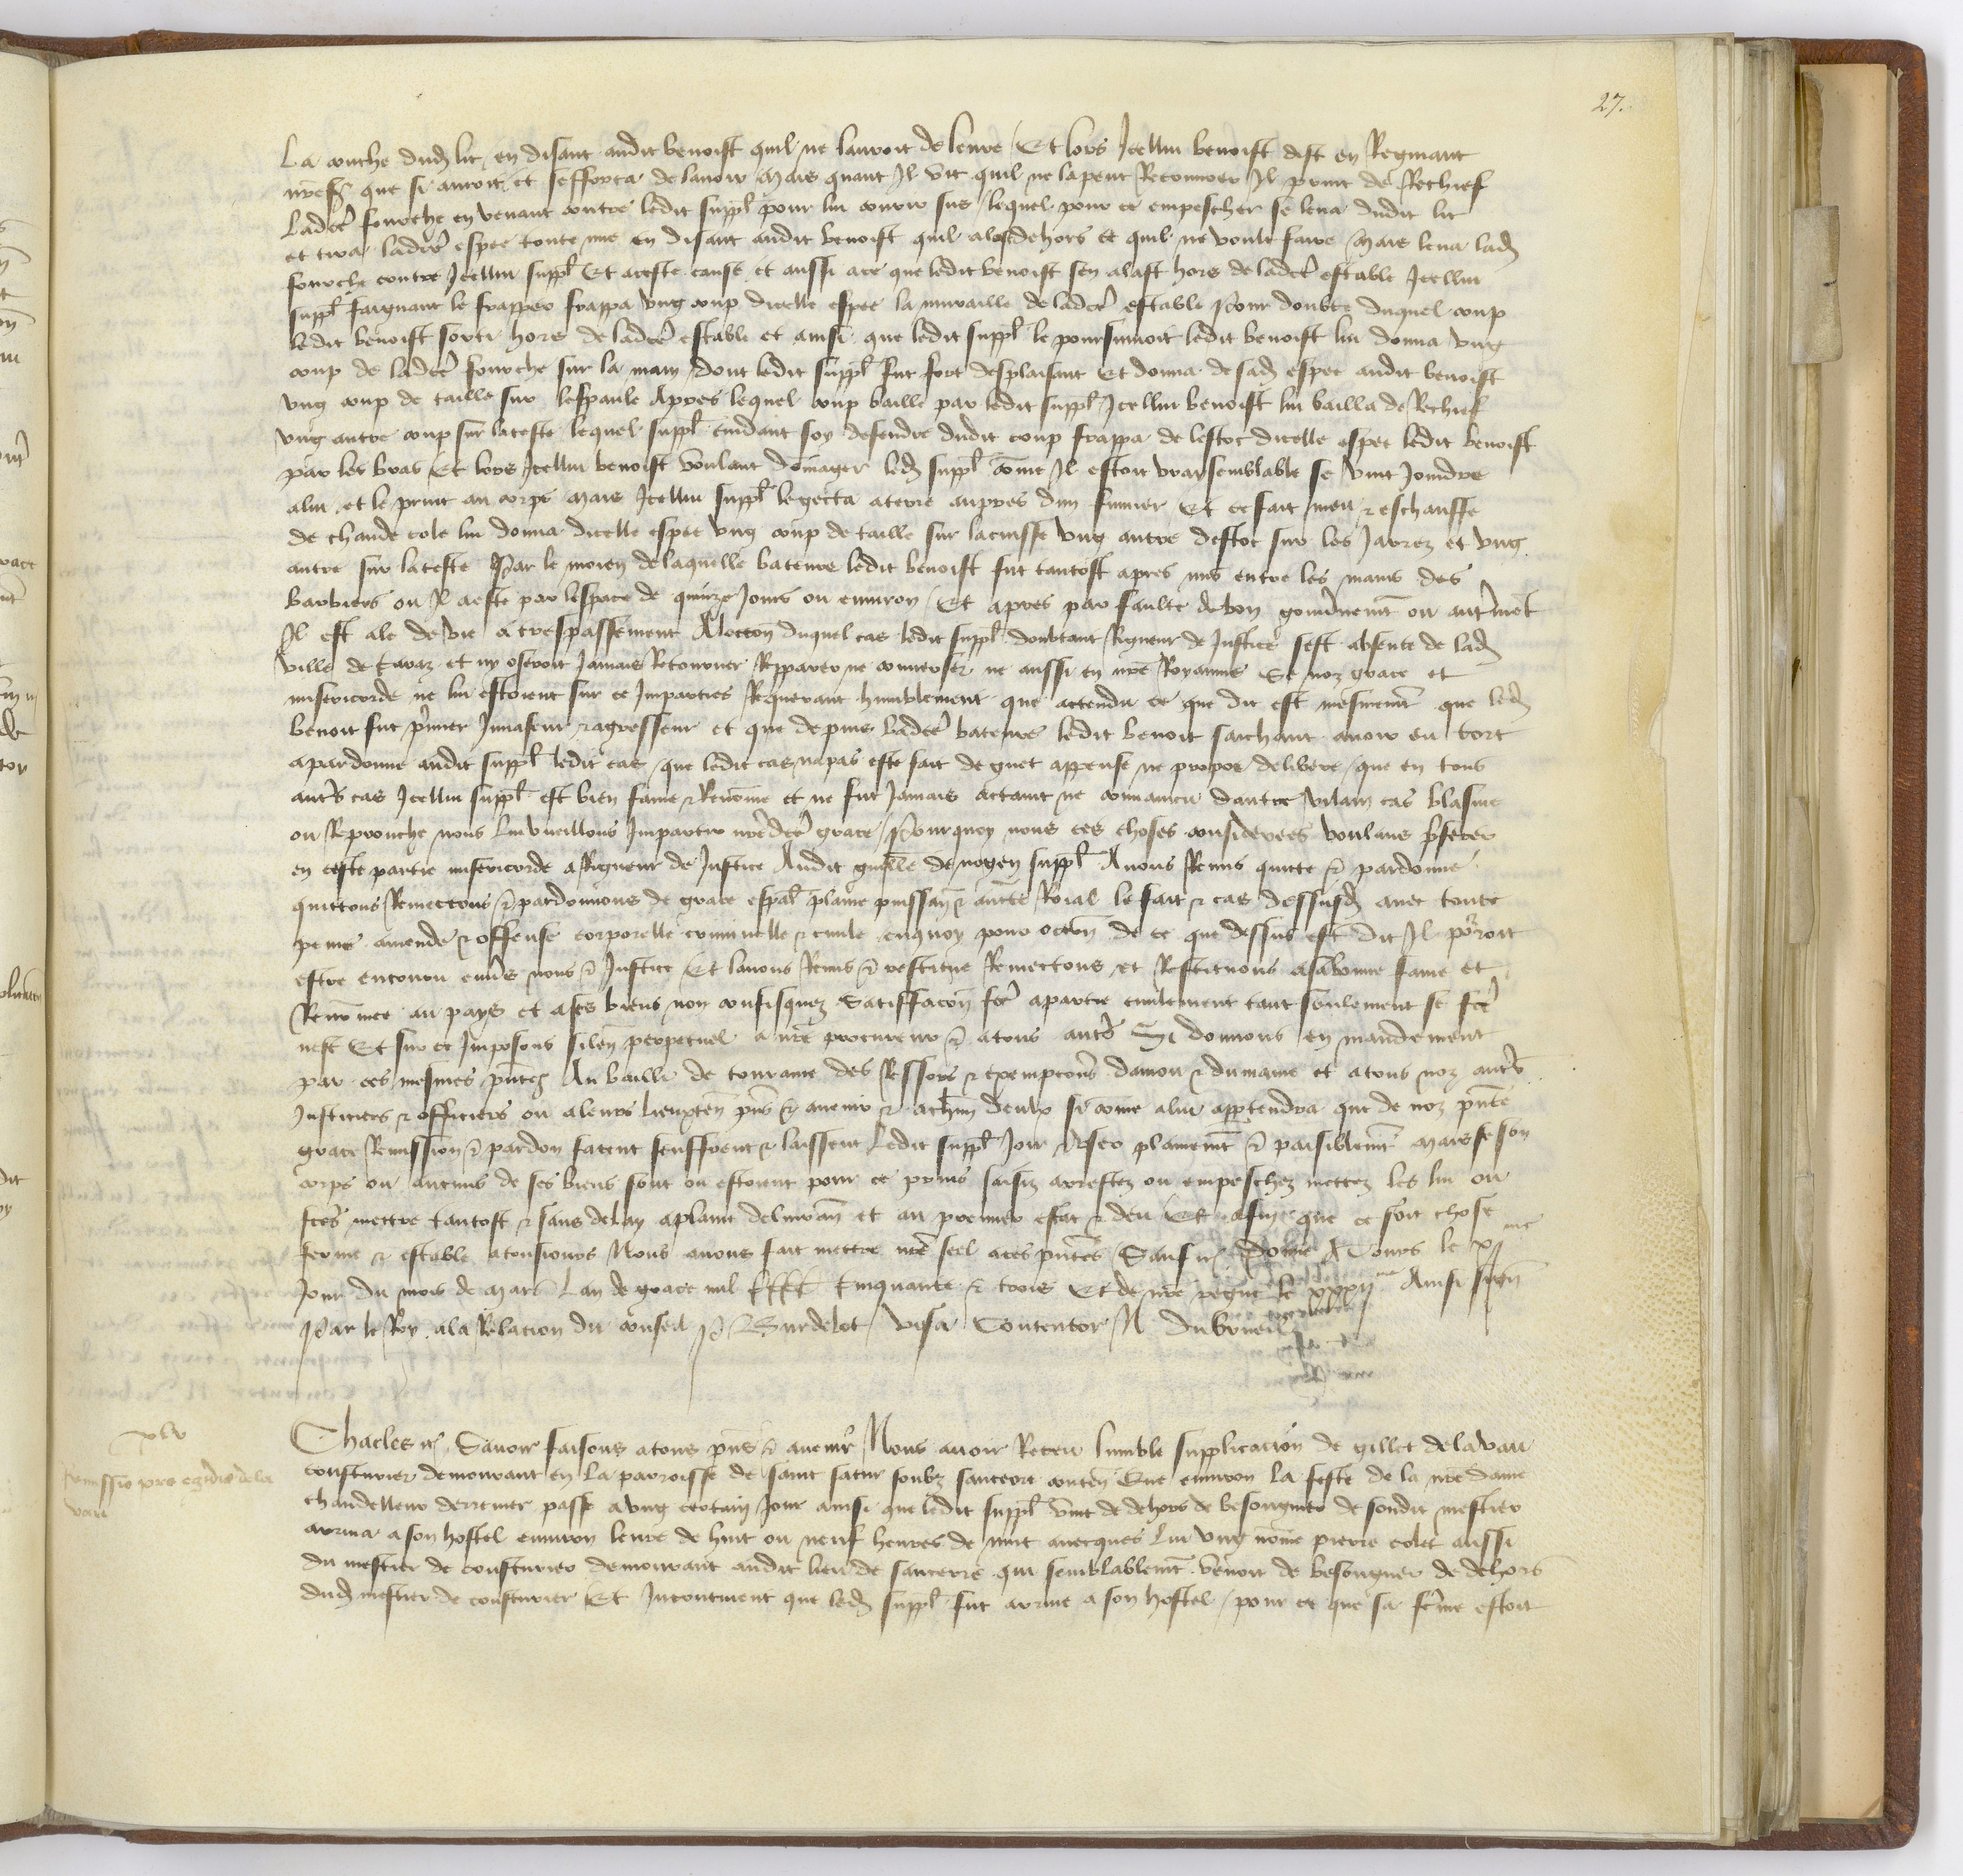 27.
La couche dud lit en disant audit benoist quil ne lauroit de leure Et lors Icellui benoist dist en Regniant
nre s que si auroit et sefforca de lauoir mais quant Il vit quil ne la peut Recouurer Il print de Rechief
Ladce fourche en venant contre ledit suppl pour lui courir sus lequel pour ce empescher se leua dudit lit
et tira ladce espee toute nue en disant audit benoist quil alast dehors et quil ne voult faire mais leua lad
fourche contre Icellui suppl Et a ceste cause et aussi ace que ledit benoist sen alast hors de ladce estable Icellui
suppl faignant le frapper frappa vng coup dicelle espee la muraille de ladce estable pour doubte duquel coup
ledit benoist sorti hors de ladce estable et ainsi que ledit suppl le poursuiuoit ledit benoist lui donna vng
coup de ladce fourche sur la main dont ledit suppl fut fort desplaisant Et donna de sad espee audit benoist
vng coup de taille sur lespaule Apres lequel coup baille par ledit suppl Icellui benoist lui bailla de Rechief
vng autre coup sur lateste lequel suppl cuidant soy defendre dudit coup frappa de lestoc dicelle espee ledit benoist
par les bras Et lors Icellui benoist voulant domager led suppl come Il estoit vraysemblable se vint Joindre
alui et le print au corps mais Icellui suppl le gecta aterre aupres dun fumier Et ce fait meu & eschauffe
de chaude cole lui donna dicelle espee vng coup de taille sur lacuisse vng autre destoc sur les Jarrez et vng
autre sur lateste Par le moien delaquelle bateure ledit benoist fut tantost apres mis entre les mains des
barbiers ou Il a este par lespace de quinze Jours ou enuiron Et apres par faulte de bon gouunemt ou autmet
Il est ale de vie a trespassement A loccon duquel cas ledit suppl doubtant Rigueur de Justice sest absente de lad
ville de et ny oseroit Jamais Retourner Repparer ne conuerser ne aussi en nre Royaume Se noz grace et
misericorde ne lui estoient sur ce Imparties Requerant humblement que actendu ce que dit est mesment que led
benoit fut pmier Inuaseur & agresseur et que depuis ladce bateure ledit benoit saichant auoir eu tort
apardonne audit suppl ledit cas que ledit cas napas este fait de guet appense ne propoz delibere que en tous
auts cas Icellui suppl est bien fame & Renome et ne fut Jamais actaint ne conuaincu dautre vilain cas blasme
ou Reprouche nous lui vueillons Impartir nre dce grace Pourquoy nous ces choses considerees voulans pferer
en ceste partie misericorde a Rigueur de Justice Audit guille de nogen suppl Auons Remis quitte & pardonne
quittons Remectons & pardonnons de grace espal plaine puissan & aucte Roial le fait & cas dessusd auec toute
peine amende & offense corporelle criminelle & ciuile enquoy pour occon de ce que dessus est dit Il pourroit
estre encouru enus nous & Justice Et lauons Remis & restitue Remectons et Restituons asabonne fame et
Renomee au pays et ases biens non confisquez Satisffacon fce apartie ciuilement tant seulement se fce
nest Et sur ce Imposons silen perpetuel a nre procureur & atous auts Si donnons en mandement
par ces mesmes pntes Au bailli de touraine des Ressors & exempcons daniou & dumaine et atous noz auts
Justiciers & officiers ou aleurs lieuxten pns & auenir & achun deulx si come alui appartendra que de noz pnte
grace Remission & pardon facent seuffrent & laissent ledit suppl Joir & vser plainemt & paisiblemt mais se son
corps ou aucuns de ses biens sont ou estoient pour ce prins saisiz arrestez ou empeschez mettez les lui ou
fces mettre tantost & sans delay aplaine deliuran et au premier estat & deu Et afin que ce soit chose
ferme & estable atousiours Nous auons fait mettre nre seel aces pntes Sauf &c Donne A Tours le xj me
Jour du mois de mars Lan de grace mil cccc Cinquante & trois Et de nre regne le xxxij me Ainsi sign
Par le Roy ala Relacion du conseil P Burdelot Visa Contentor N du brueil

xlv
Remissio pro egidio dela
vau
Charles &c Sauoir faisons atous pns & auenir Nous auoir Receu lumble supplicacion de gillet delavau
cousturier demourant en la parroisse de saint satur soubz sancerre conten Que enuiron la feste de la nre dame
chandelleur derrenier passe a vng certain Jour ainsi que ledit suppl vint de dehors de besongner de sondit mestier
arriua a son hostel enuiron leure de huit ou neuf heures de nuit auecques lui vng nome pierre colet aussi
du mestier de cousturier demourant audit lieu de sancerre qui semblablemt venoit de besongner de dehors
dud mestier de cousturier Et Incontinent que led suppl fut arriue a son hostel pour ce que sa feme estoit